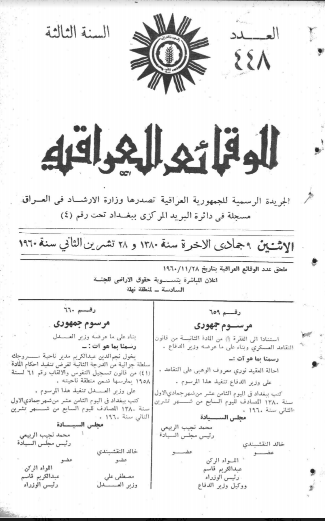 العـــدد
٤٤٨
السنة الثالثة
الوقائع العراقية
الجريدة الرسمية للجمهورية العراقية تصدرها وزارة الارشاد في العراق
مسجلة في دائرة البريد المركزي ببغداد تحت رقم (٤)
الاثنين ٩ جمادى الآخرة سنة ١٣٨٠ و ٢٨ تشرين الثاني سنة ١٩٦٠
ملحق عدد الوقائع العراقية بتاريخ ١٩٦٠/١١/٢٨
اعلان المباشرة بتسوية حقوق الاراضي للجنة
السادسة – لمنطقة
رقم ٦٥٩
مرسوم جمهوري
استنادا الى الفقرة (أ) من المادة الثانية من قانون
التقاعد العسكري وبناء على ما عرضه وزير الدفاع
رسمنا بما هو آت :ـ
احالة العقيد نوري معروف الوهبي على التقاعد
على وزير الدفاع تنفيذ هذا المرسوم
كتب ببغداد في اليوم الثامن عشر من شهر جمادي الاول
سنة ١٣٨٠ المصادف لليوم السابع من شهر تشرين
الثاني سنة ١٩٦٠
مجلس السيادة
محمد نجيب الربيعي
رئيس مجلس السيادة
خالد النقشبندي
عضو
عضو
اللواء الركن
عبدالكريم قاسم
رئيس الوزراء
ووكيل وزير الدفاع
رقم ٦٦٠
مرسوم جمهوري
بناء على ما عرضه وزير العدل
رسمنا بما هو آت :ـ
يخول نجم الدين عبدالكريم مدير ناحية سروجك
سلطة جزائية من الدرجة الثالثة لغرض تنفيذ احكام المادة
(٤١) من قانون تسجيل النفوس والاقامة رقم ٦١ لسنة
١٩٥٨ يمارسها ضمن منطقة ناحيته
على وزير العدل تنفيذ هذا المرسوم
كتب ببغداد في اليوم الثامن عشر من شهر جمادي الاول
سنة ١٣٨٠ المصادف لليوم السابع من شهر تشرين
الثاني سنة ١٩٦٠
مجلس السيادة
محمد نجيب الربيعي
رئيس مجلس السيادة
خالد النقشبندي
عضو
عضو
مصطفى علي
وزير العدل
اللواء الركن
عبدالكريم قاسم
رئيس الوزراء